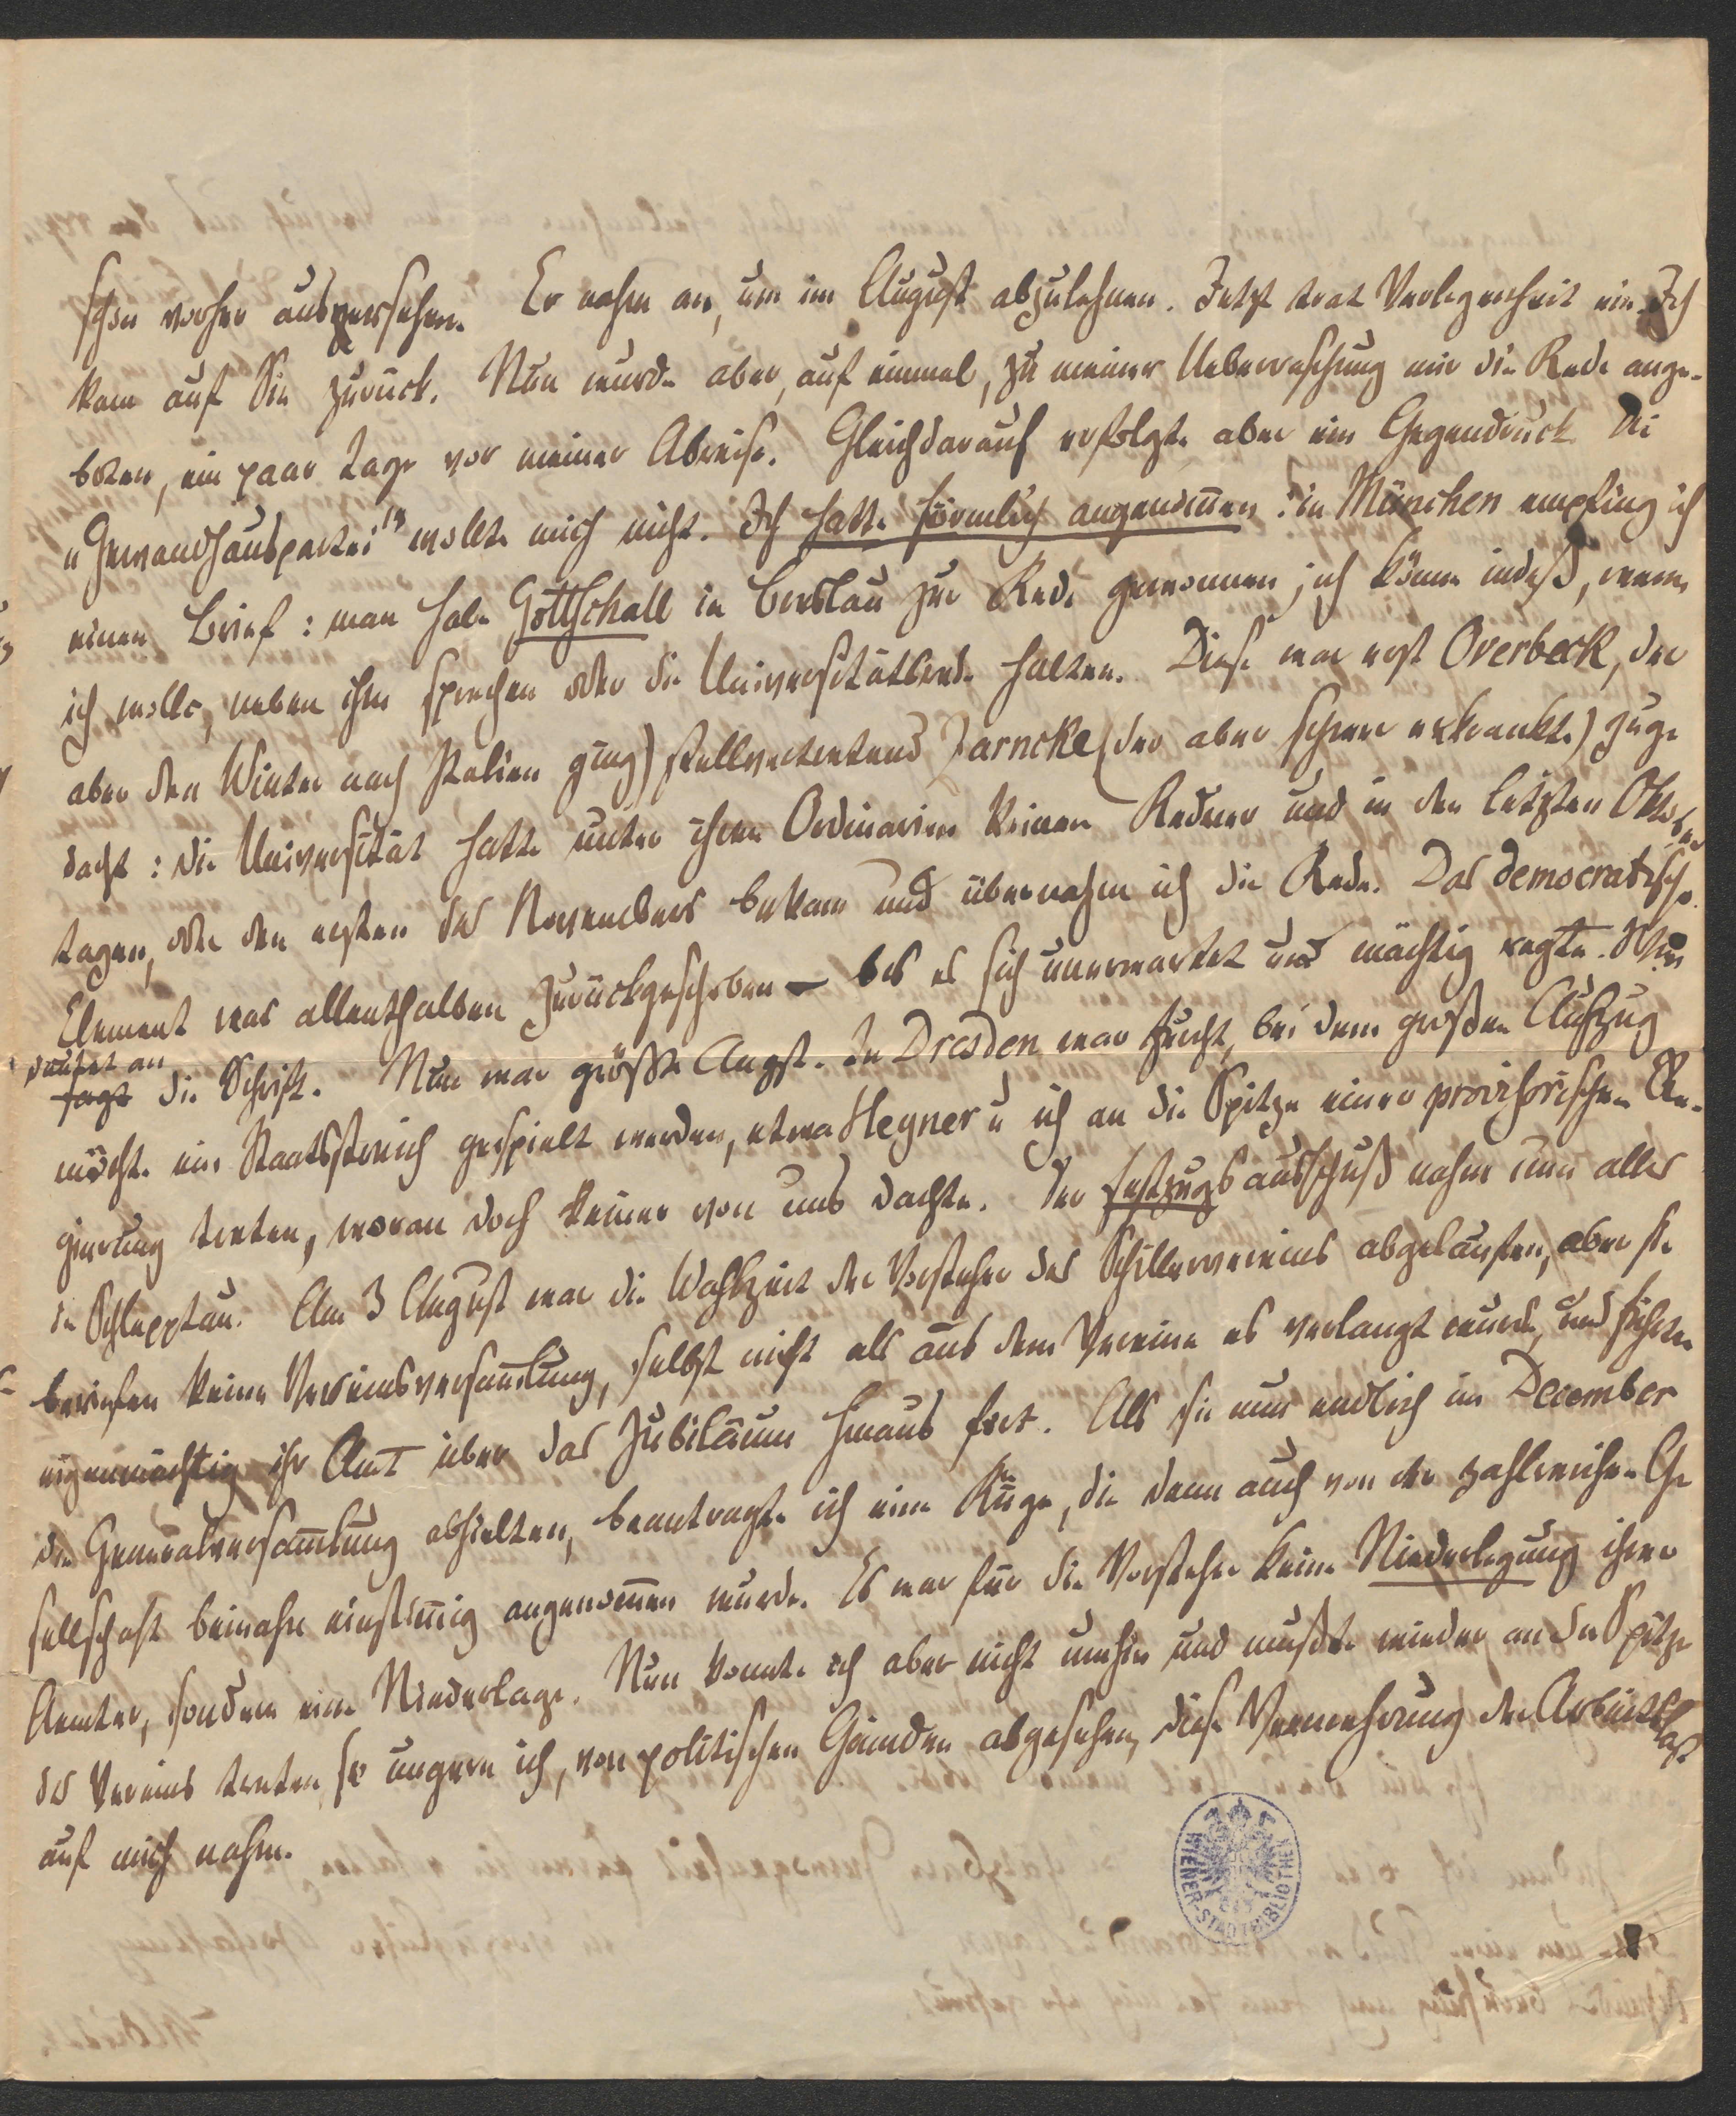 schon vorher ausersehen. Er nahm an, um im August abzulehnen. Jetzt trat Verlegenheit ein. Ich
kam auf Sie zurück. Nun wurde aber, auf einmal, zu meiner Ueberraschung mir die Rede ange-
boten, ein paar Tage vor meiner Abreise. Gleich darauf erfolgte aber ein Gegendruck. Die
„Gewandhauspartei" wollte mich nicht. Ich hatte förmlich angenom̄en: in München empfing ich
einen Brief: man habe Gottschall in Breslau zur Rede gewonnen; ich könne indeß, wenn
ich wolle, neben ihm sprechen oder die Universitätsrede halten. Diese war erst Overbeck, (der
aber den Winter nach Italien ging) stellvertretend Zarncke (der aber schwer erkrankte) zuge
dacht: die Universität hatte unter ihren Ordinarien keinen Redner und in den letzten Oktober
tagen, oder den ersten des Novembers bekam und übernahm ich die Rede. Das democratische
Element war allenthalben zurückgeschoben – bis es sich unerwartet und mächtig regte. Wie
deutet an
sagt die Schrift. Nun war größte Angst. In Dresden war Furcht, bei dem großen Aufzug
möchte ein Staatsstreich gespielt werden, etwa Heyner u ich an die Spitze einer provisorischen Re-
gierung treten, woran doch keiner von uns dachte. Der Festzugsausschuß nahm nun alles
in Schlepptau. Am 3 August war die Wahlzeit der Vorsteher des Schillervereins abgelaufen, aber sie
beriefen keine Vereinsversam̄lung, selbst nicht als aus dem Vereine es verlangt wurde, und führten
eigenmächtig ihr Amt über das Jubiläum hinaus fort. Als sie nun endlich im December
die Generalversam̄lung abhielten, beantragte ich eine Rüge, die denn auch von der zahlreichen Ge
sellschaft beinahe einstim̄ig angenom̄en wurde. Es war für die Vorsteher keine Niederlegung ihrer
Aemter, sondern eine Niederlage. Nun konnte ich aber nicht umhin und mußte wieder an die Spitze
des Vereins treten, so ungern ich, von politischen Gründen abgesehen, diese Vermehrung der Arbeitslast
auf mich nahm.
WIENER-STADTBIBLIOTHEK